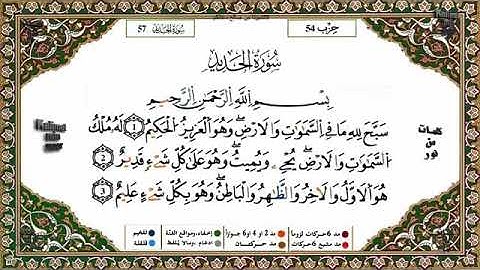 حزب 54
سورة الحديد 57
سُورَةُ الْحَدِيدِ
بِسْمِ اللَّهِ الرَّحْمَٰنِ الرَّحِيمِ
سَبَّحَ لِلَّهِ مَا فِي السَّمَٰوَٰتِ وَالْأَرْضِ وَهُوَ الْعَزِيزُ الْحَكِيمُ 1 لَهُ مُلْكُ
السَّمَٰوَٰتِ وَالْأَرْضِ يُحْيِۦ وَيُمِيتُ وَهُوَ عَلَىٰ كُلِّ شَيْءٍ قَدِيرٌ 2
هُوَ الْأَوَّلُ وَالْآخِرُ وَالظَّٰهِرُ وَالْبَاطِنُ وَهُوَ بِكُلِّ شَيْءٍ عَلِيمٌ 3
كلمات
من
نور
مد 6 حركات لزوما
مد 2 او 4 او 6 جوازا
إخفاء، ومواقع الغنة
تفخيم
مد مشبع 6 حركات
مد حركتان
إدغام، ومالا يلفظ
قلقلة